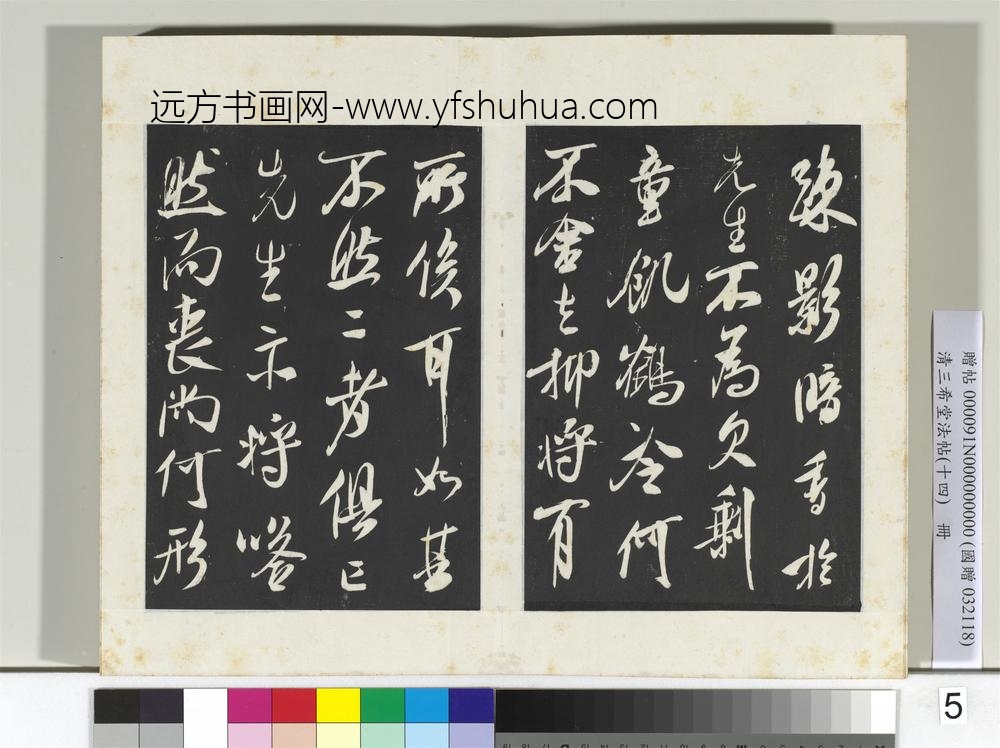 远方书画网-www.yfshuhua.com
疎影暗香於
先生不為欠剩
童飢鶴冷何
不舍去抑將有
所俟耶如其
不然二者俱亡
先生亦將嗒
然而喪尚何形
贈帖 000091N000000000 (國贈 032118)
清三希堂法帖(十四) 冊
5